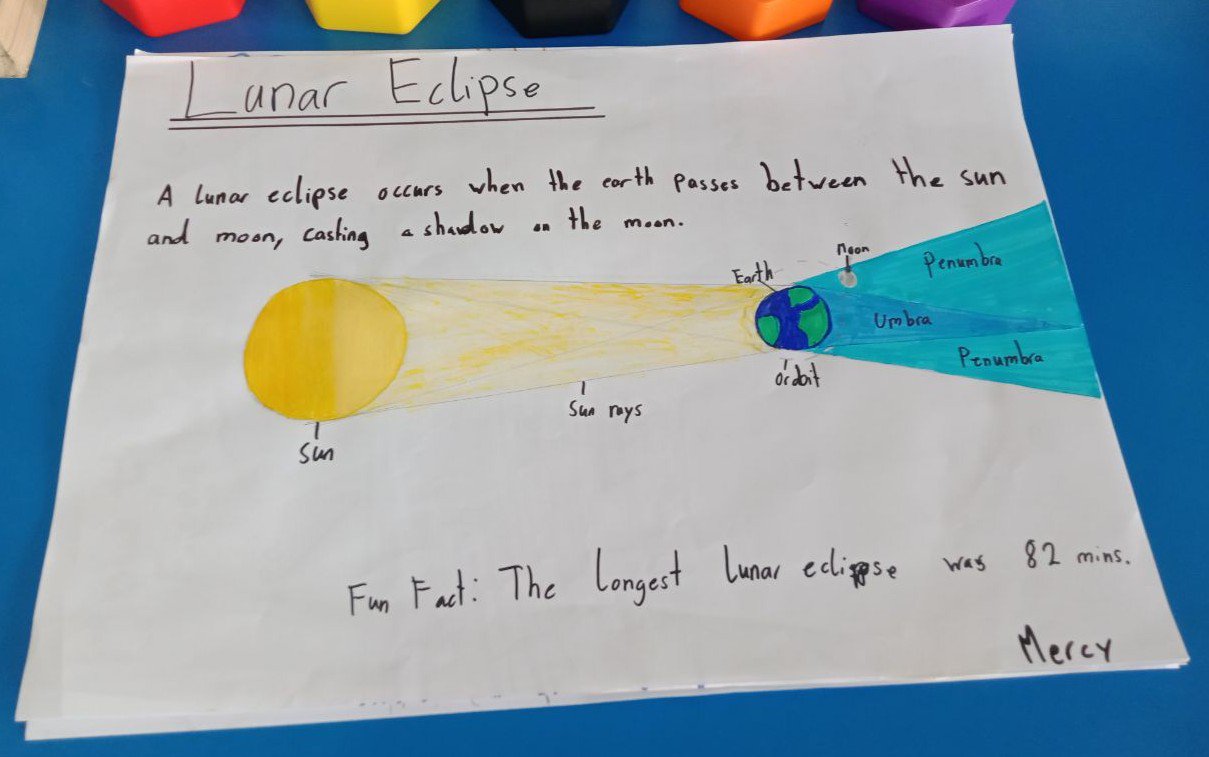 Lunar Eclipse
A lunar eclipse occurs when the earth passes between the sun
and moon, casting a shadow on the moon.
Moon
Earth
Penumbra
Umbra
Penumbra
orbit
Sun rays
Sun
Fun Fact: The longest lunar eclipse was 82 mins.
Mercy